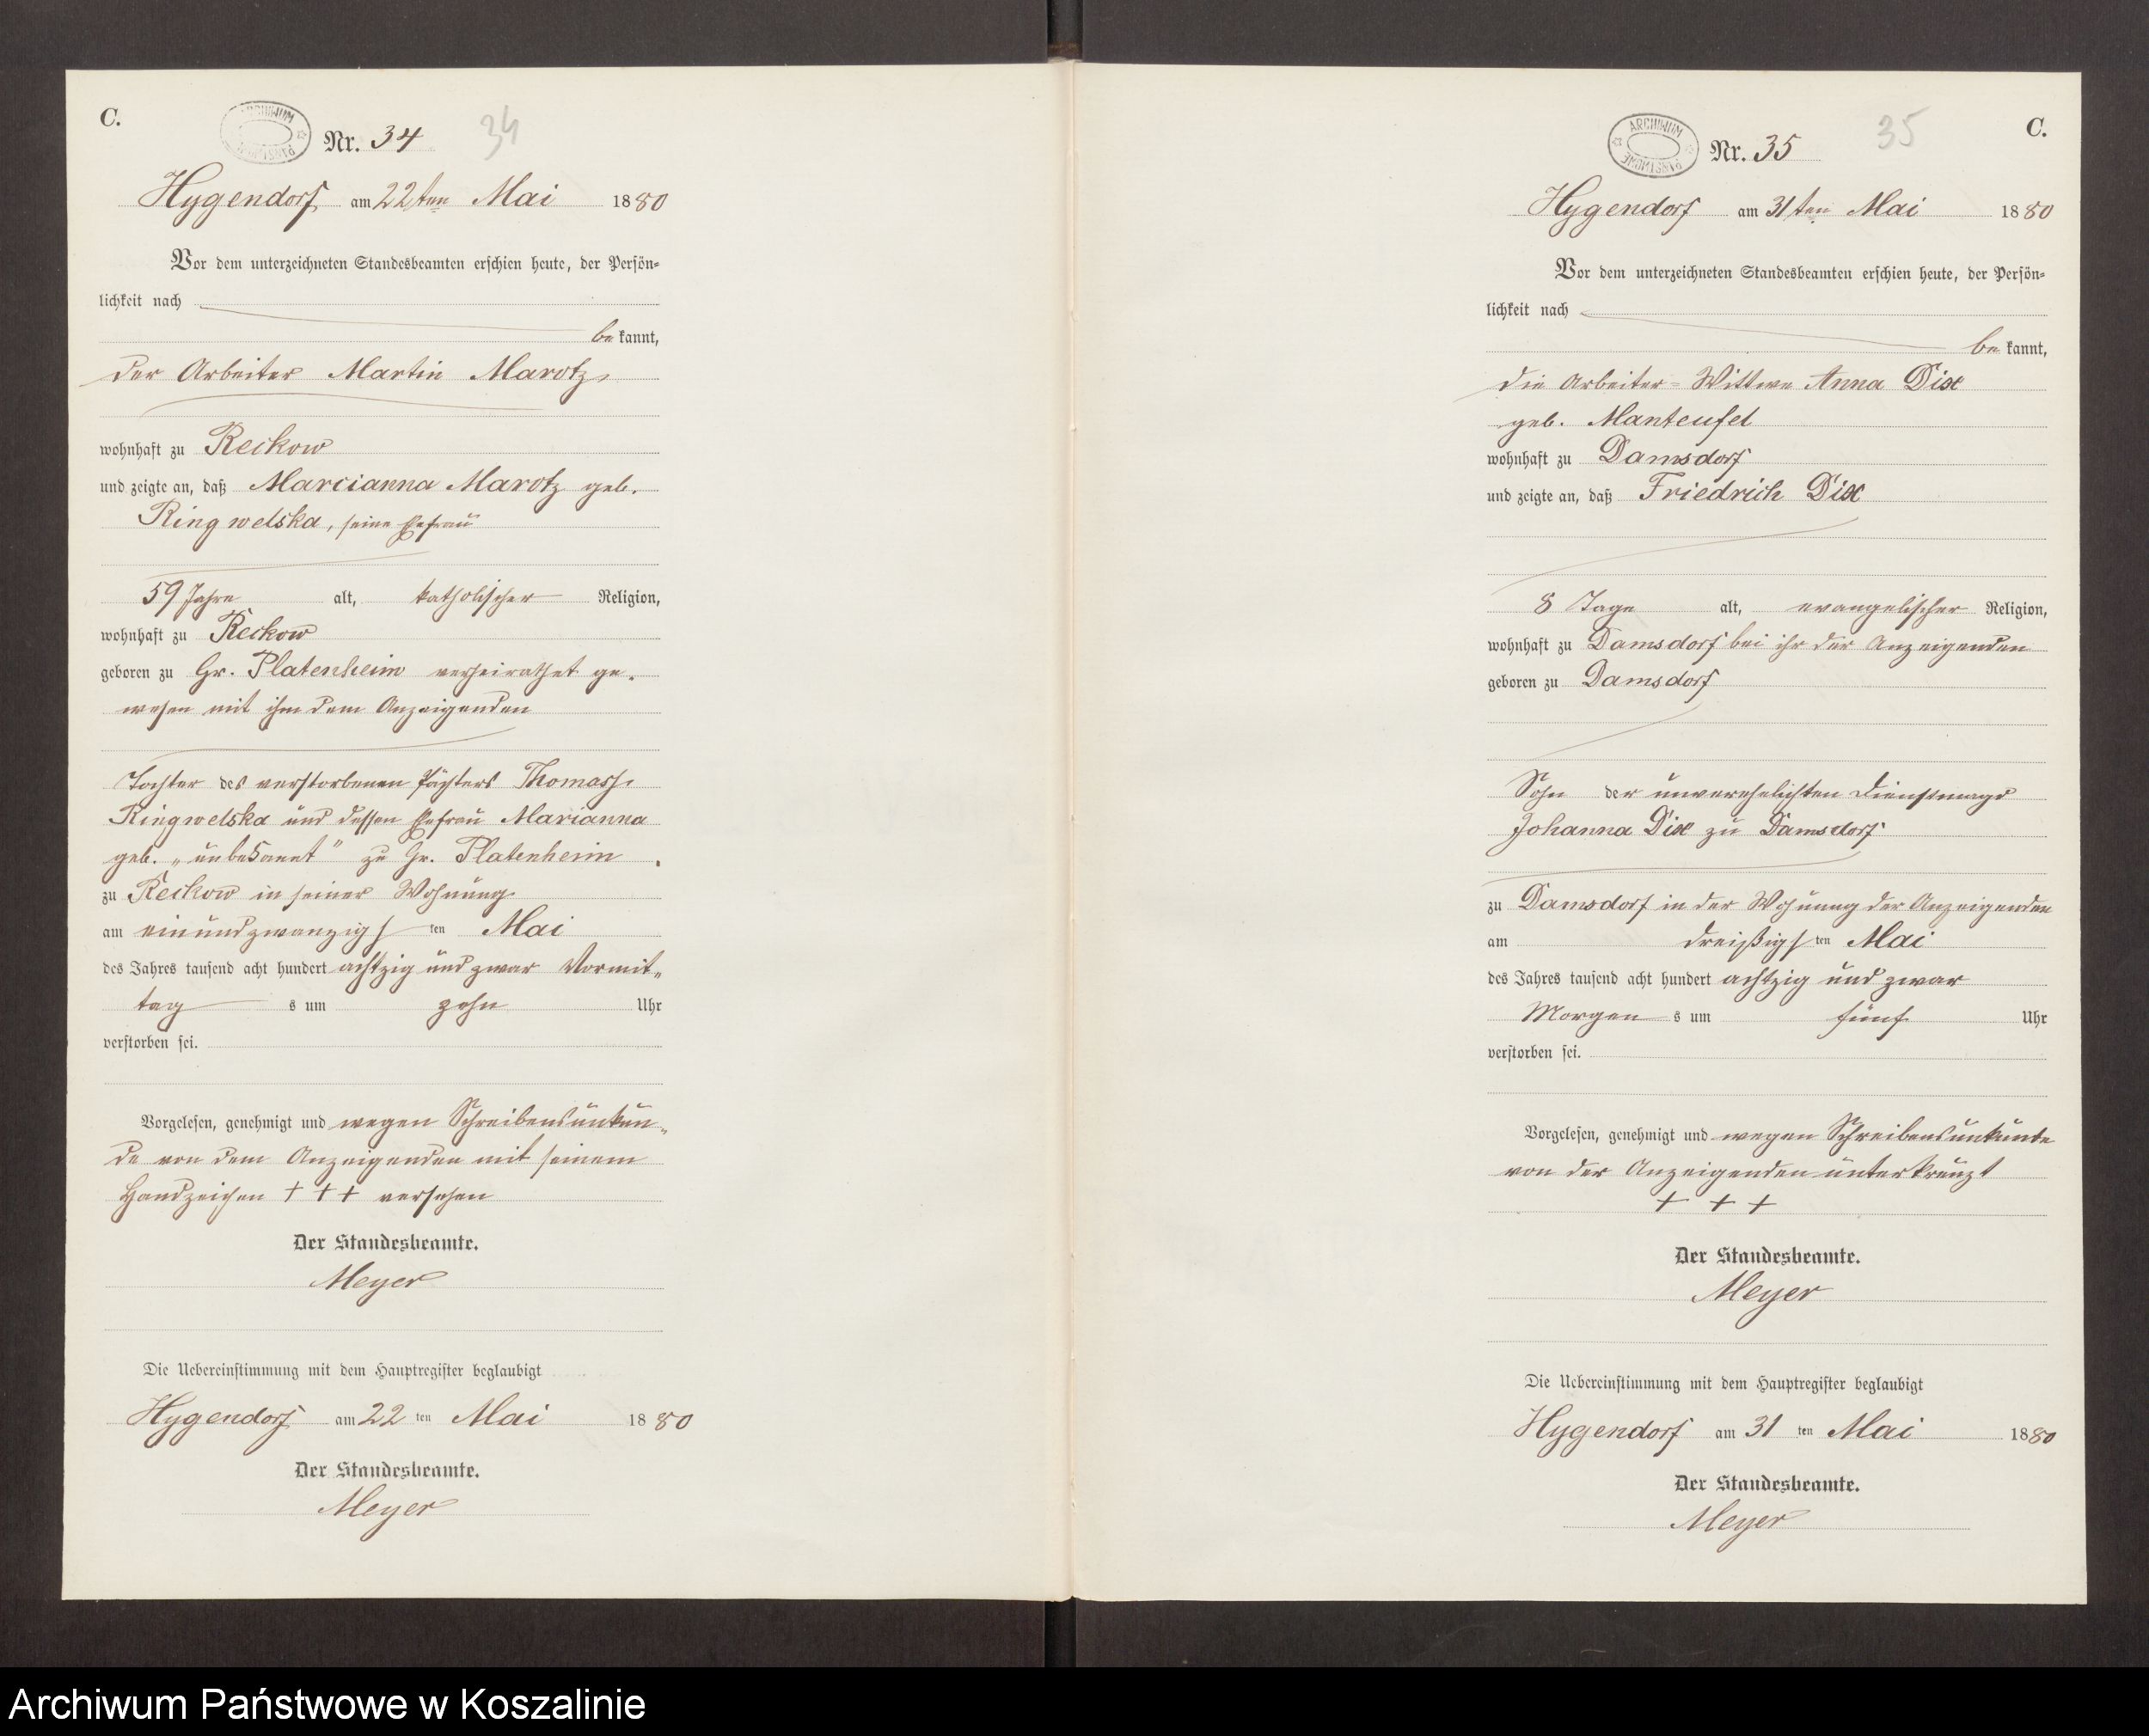 C.
ARCHIWUM PAŃSTWOWE
Nr. 34
34
Hygendorf am 22ten Mai 1880
Vor dem unterzeichneten Standesbeamten erschien heute, der Persön-
lichkeit nach
bekannt,
der Arbeiter Martin Marotz,
wohnhaft zu Reckow
und zeigte an, daß Marcianna Marotz geb.
Ringwelska, seine Ehefrau
59 Jahre alt, katholischer Religion,
wohnhaft zu Reckow
geboren zu Gr. Platenheim verheirathet ge-
wesen mit ihm dem Anzeigenden
Tochter des verstorbenen Pächters Thomas
Ringwelska und dessen Ehefrau Marianna
geb. „unbekannt" zu Gr. Platenheim
zu Reckow in seiner Wohnung
am einundzwanzigsten Mai
des Jahres tausend acht hundert achtzig und zwar Vormit-
tags um zehn Uhr
verstorben sei.
Vorgelesen, genehmigt und wegen Schreibensunkun-
de von dem Anzeigenden mit seinem
Handzeichen + + + versehen
Der Standesbeamte.
Meyer
Die Uebereinstimmung mit dem Hauptregister beglaubigt
Hygendorf am 22ten Mai 1880
Der Standesbeamte.
Meyer
C.
ARCHIWUM PAŃSTWOWE
Nr. 35
35
Hygendorf am 31ten Mai 1880
Vor dem unterzeichneten Standesbeamten erschien heute, der Persön-
lichkeit nach
bekannt,
die Arbeiter-Wittwe Anna Dix
geb. Manteufel
wohnhaft zu Damsdorf
und zeigte an, daß Friedrich Dix
8 Tage alt, evangelischer Religion,
wohnhaft zu Damsdorf bei ihr der Anzeigenden
geboren zu Damsdorf
Sohn der unverehelichten Dienstmagd
Johanna Dix zu Damsdorf
zu Damsdorf in der Wohnung der Anzeigenden
am dreißigsten Mai
des Jahres tausend acht hundert achtzig und zwar
Morgens um fünf Uhr
verstorben sei.
Vorgelesen, genehmigt und wegen Schreibensunkunde
von der Anzeigenden unterkreuzt
+ + +
Der Standesbeamte.
Meyer
Die Uebereinstimmung mit dem Hauptregister beglaubigt
Hygendorf am 31ten Mai 1880
Der Standesbeamte.
Meyer
Archiwum Państwowe w Koszalinie